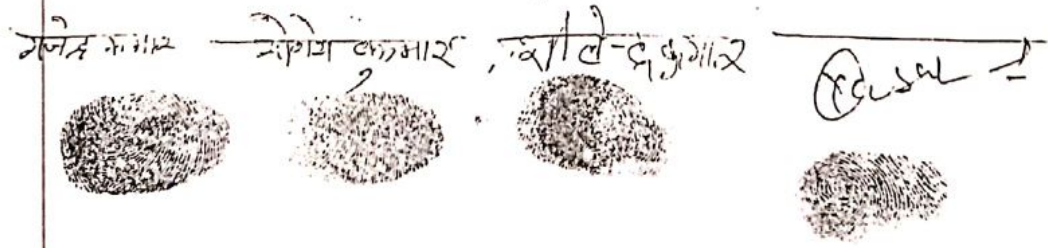 गजेन्द्र कुमार योगेश कुमार शैलेन्द्र कुमार